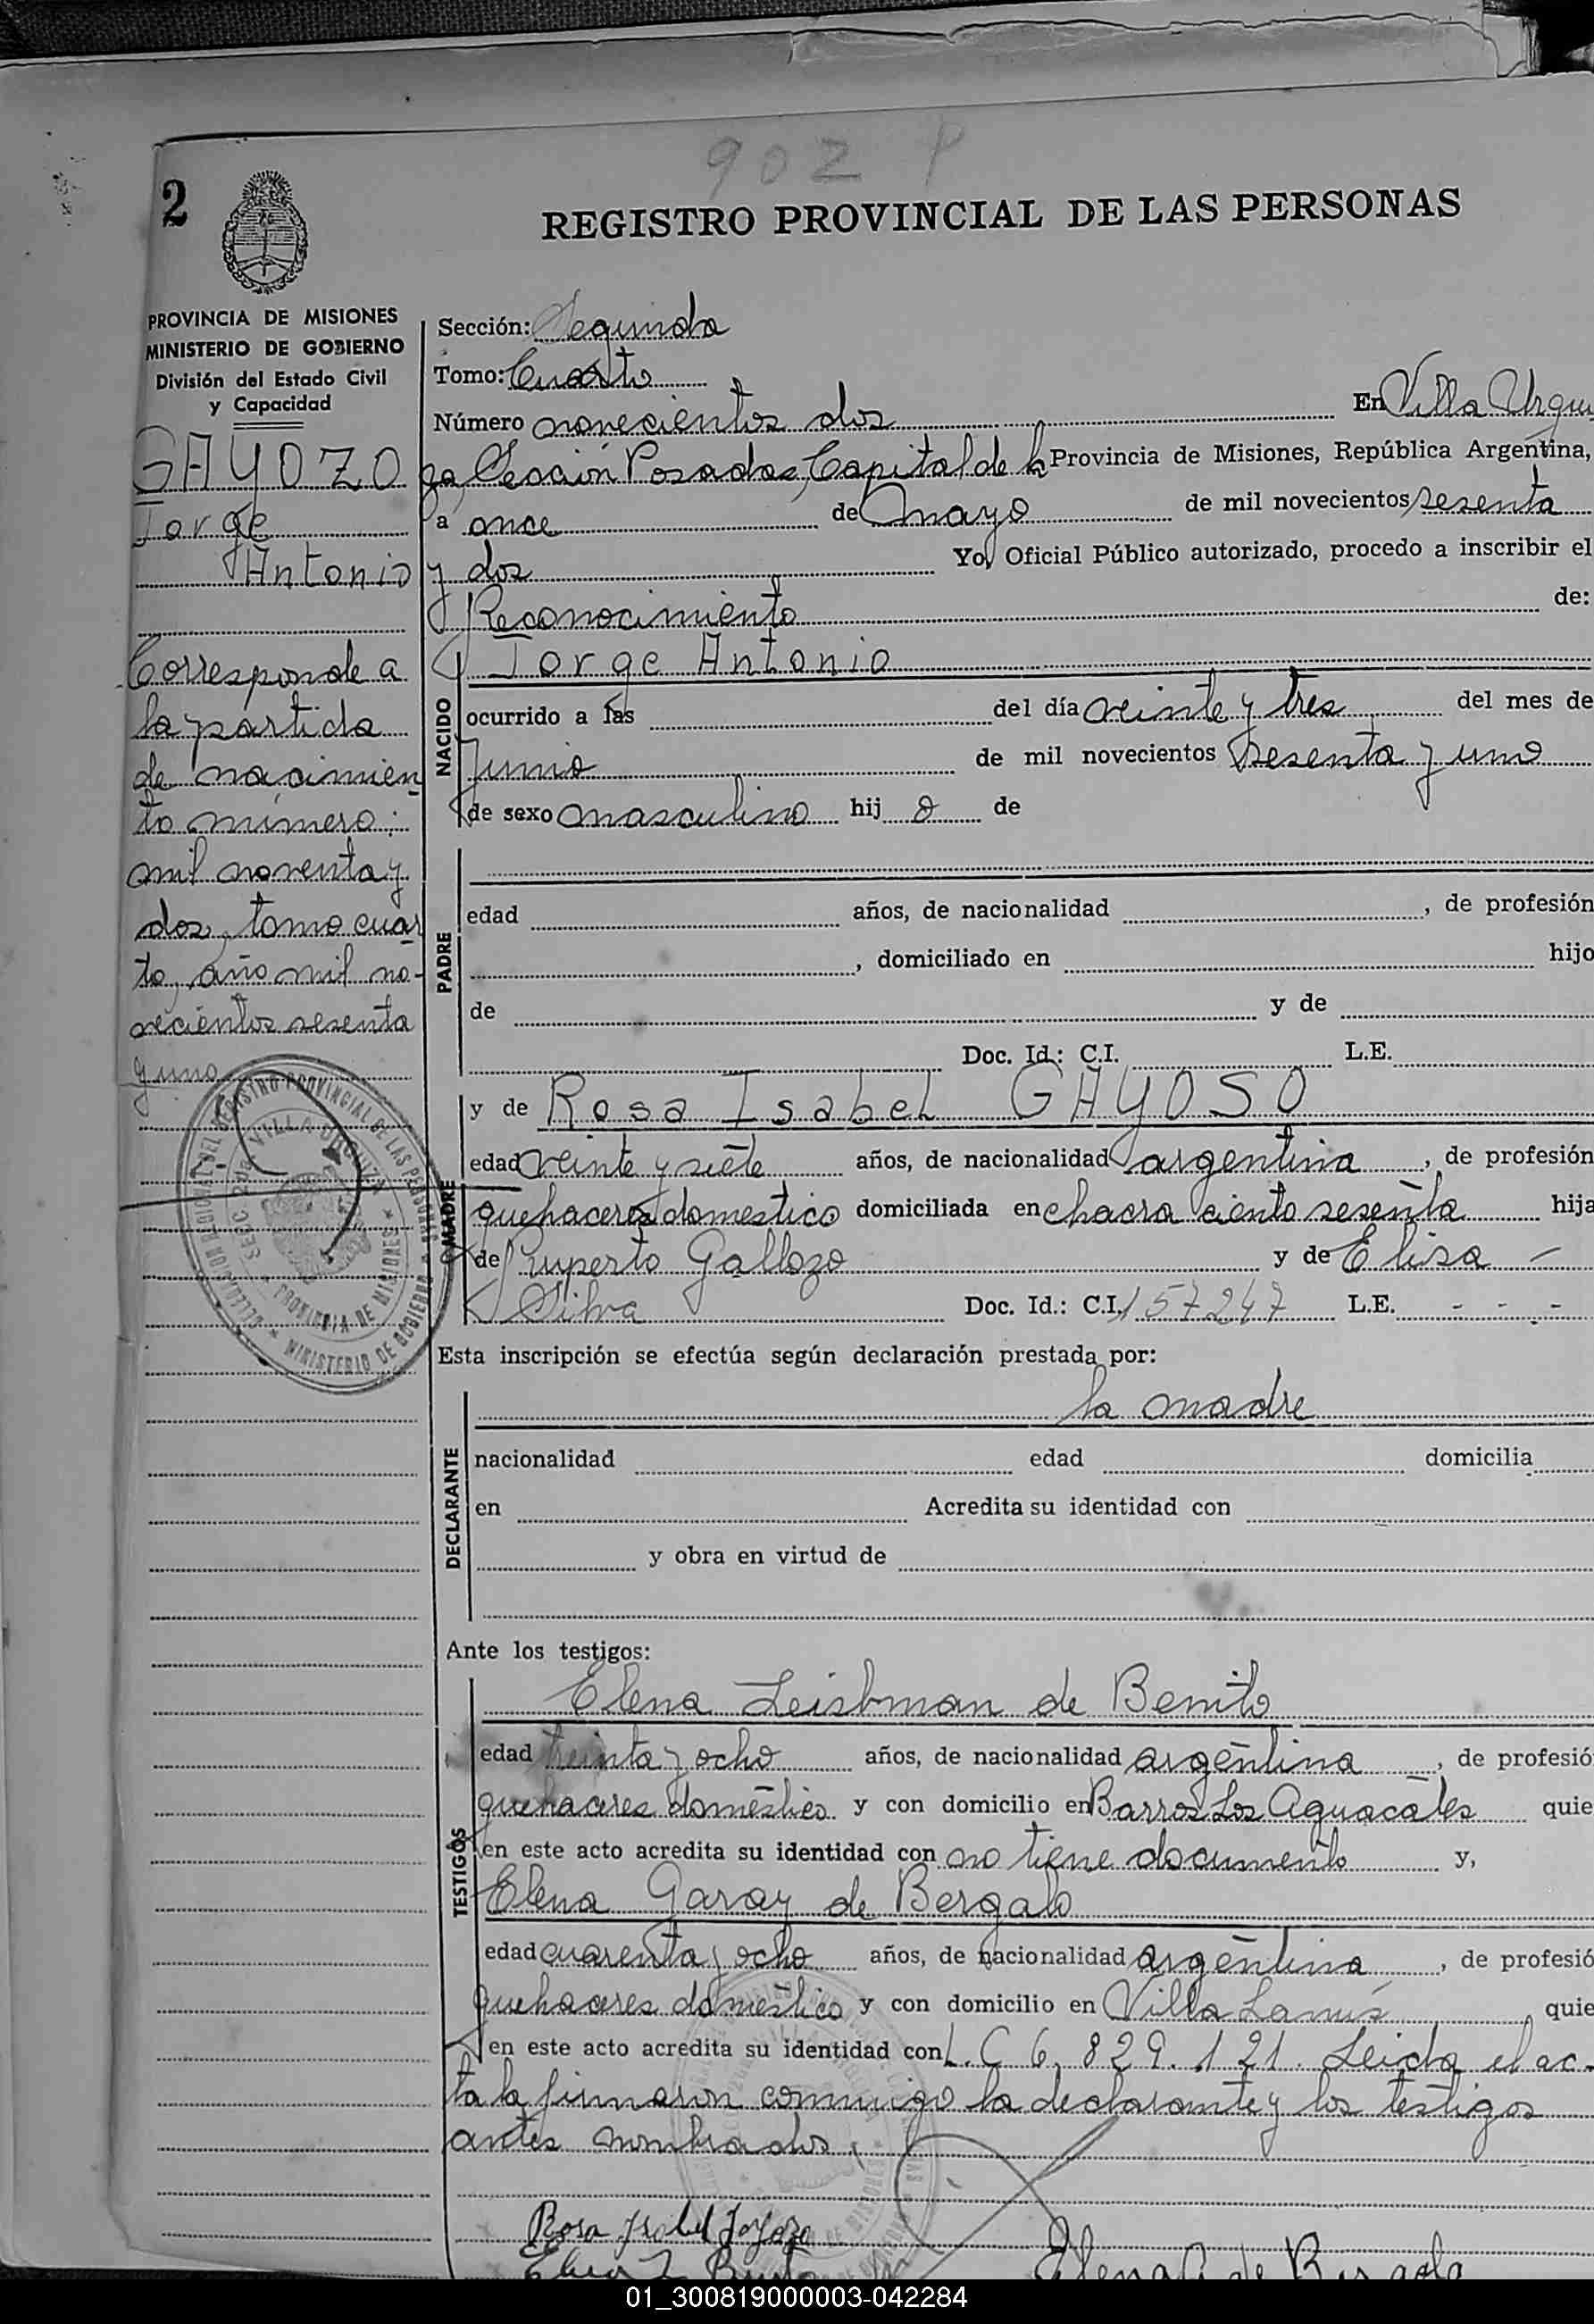 902 P
2
REGISTRO PROVINCIAL DE LAS PERSONAS
PROVINCIA DE MISIONES
MINISTERIO DE GOBIERNO
División del Estado Civil
y Capacidad
GAYOZO
Jorge
Antonio
Corresponde a
la partida
de nacimien
to número:
mil noventa y
dos, tomo cuar
to, año mil no-
vecientos sesenta
y uno
Sección: Segunda
Tomo: Cuarto
Número novecientos dos En Villa Urqui
za, Sección Posadas, Capital de la Provincia de Misiones, República Argentina,
a once de mayo de mil novecientos sesenta
y dos Yo, Oficial Público autorizado, procedo a inscribir el
Reconocimiento de:
NACIDO
Jorge Antonio
ocurrido a las del día veinte y tres del mes de
Junio de mil novecientos sesenta y uno
de sexo masculino hij o de
PADRE
edad años, de nacionalidad , de profesión
, domiciliado en hijo
de y de
Doc. Id.: C.I. L.E.
MADRE
y de Rosa Isabel GAYOSO
edad veinte y siete años, de nacionalidad argentina, de profesión
quehaceres domestico domiciliada en chacra ciento sesenta hija
de Ruperto Gallozo y de Elisa -
Silva Doc. Id.: C.I. 157247 L.E. - - -
Esta inscripción se efectúa según declaración prestada por:
DECLARANTE
la madre
nacionalidad edad domicilia
en Acredita su identidad con
y obra en virtud de
Ante los testigos:
TESTIGOS
Elena Leisbman de Benito
edad treinta y ocho años, de nacionalidad argentina, de profesió
quehaceres domestico y con domicilio en Barros Los Aguacates quie
en este acto acredita su identidad con no tiene documento y,
Elena Garay de Bergalo
edad cuarenta y ocho años, de nacionalidad argentina, de profesió
quehaceres domestico y con domicilio en Villa Lanús quie
en este acto acredita su identidad con L. C 6, 829. 121. Leida el ac-
ta la firmaron conmigo la declarante y los testigos
antes nombrados.
Rosa Isabel Gayozo
Elena de Bergalo
01_300819000003-042284